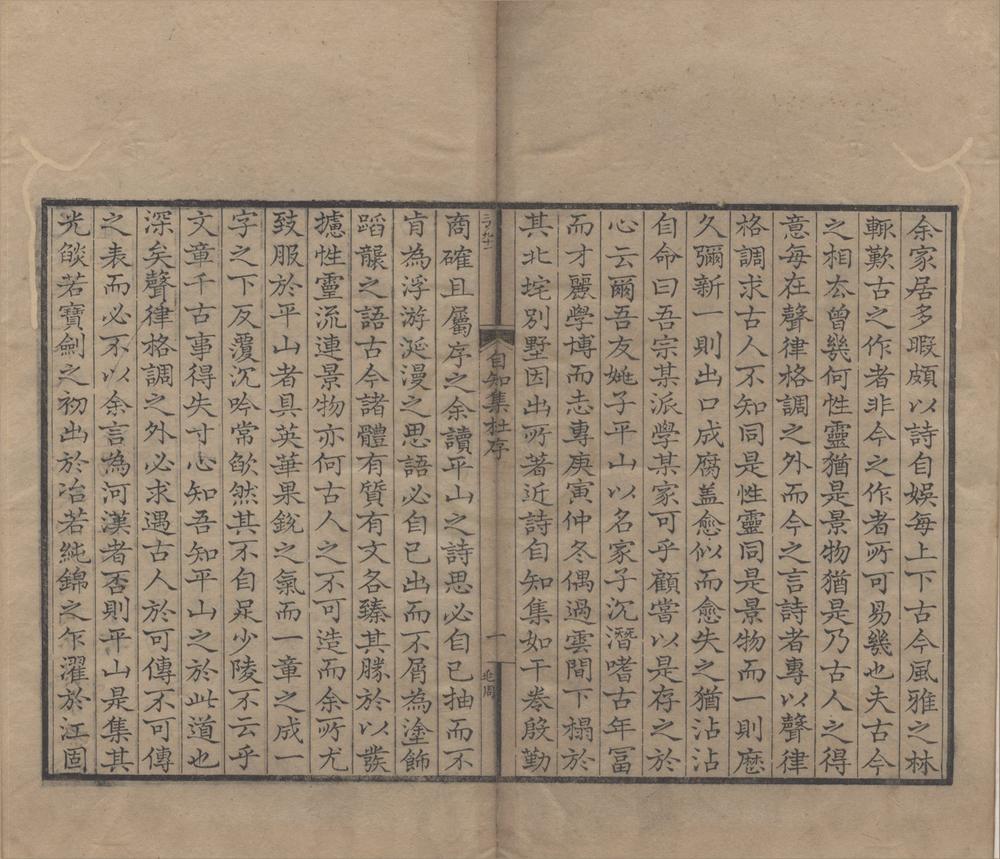 余家居多暇頗以詩自娛每上下古今風雅之林
輒歎古之作者非今之作者所可易幾也夫古今
之相去曾幾何性靈猶是景物猶是乃古人之得
意每在聲律格調之外而今之言詩者專以聲律
格調求古人不知同是性靈同是景物而一則歷
久彌新一則出口成腐盖愈似而愈失之猶沾沾
自命曰吾宗某派學某家可乎顧當以是存之於
心云爾吾友姚子平山以名家子沉潛嗜古年富
而才麗學博而志專庚寅仲冬偶過雲間下榻於
其北垞別墅因出所著近詩自知集如干卷殷勤
自知集杜序
一
商確且屬序之余讀平山之詩思必自已抽而不
肯為浮游涎漫之思語必自已出而不屑為塗飾
蹈襲之語古今諸體有質有文各臻其勝於以發
攄性靈流連景物亦何古人之不可造而余所尤
致服於平山者具英華果銳之氣而一章之成一
字之下反覆沉吟常欿然其不自足少陵不云乎
文章千古事得失寸心知吾知平山之於此道也
深矣聲律格調之外必求遇古人於可傳不可傳
之表而必不以余言為河漢者否則平山是集其
光燄若寶劍之初出於冶若純錦之乍濯於江固